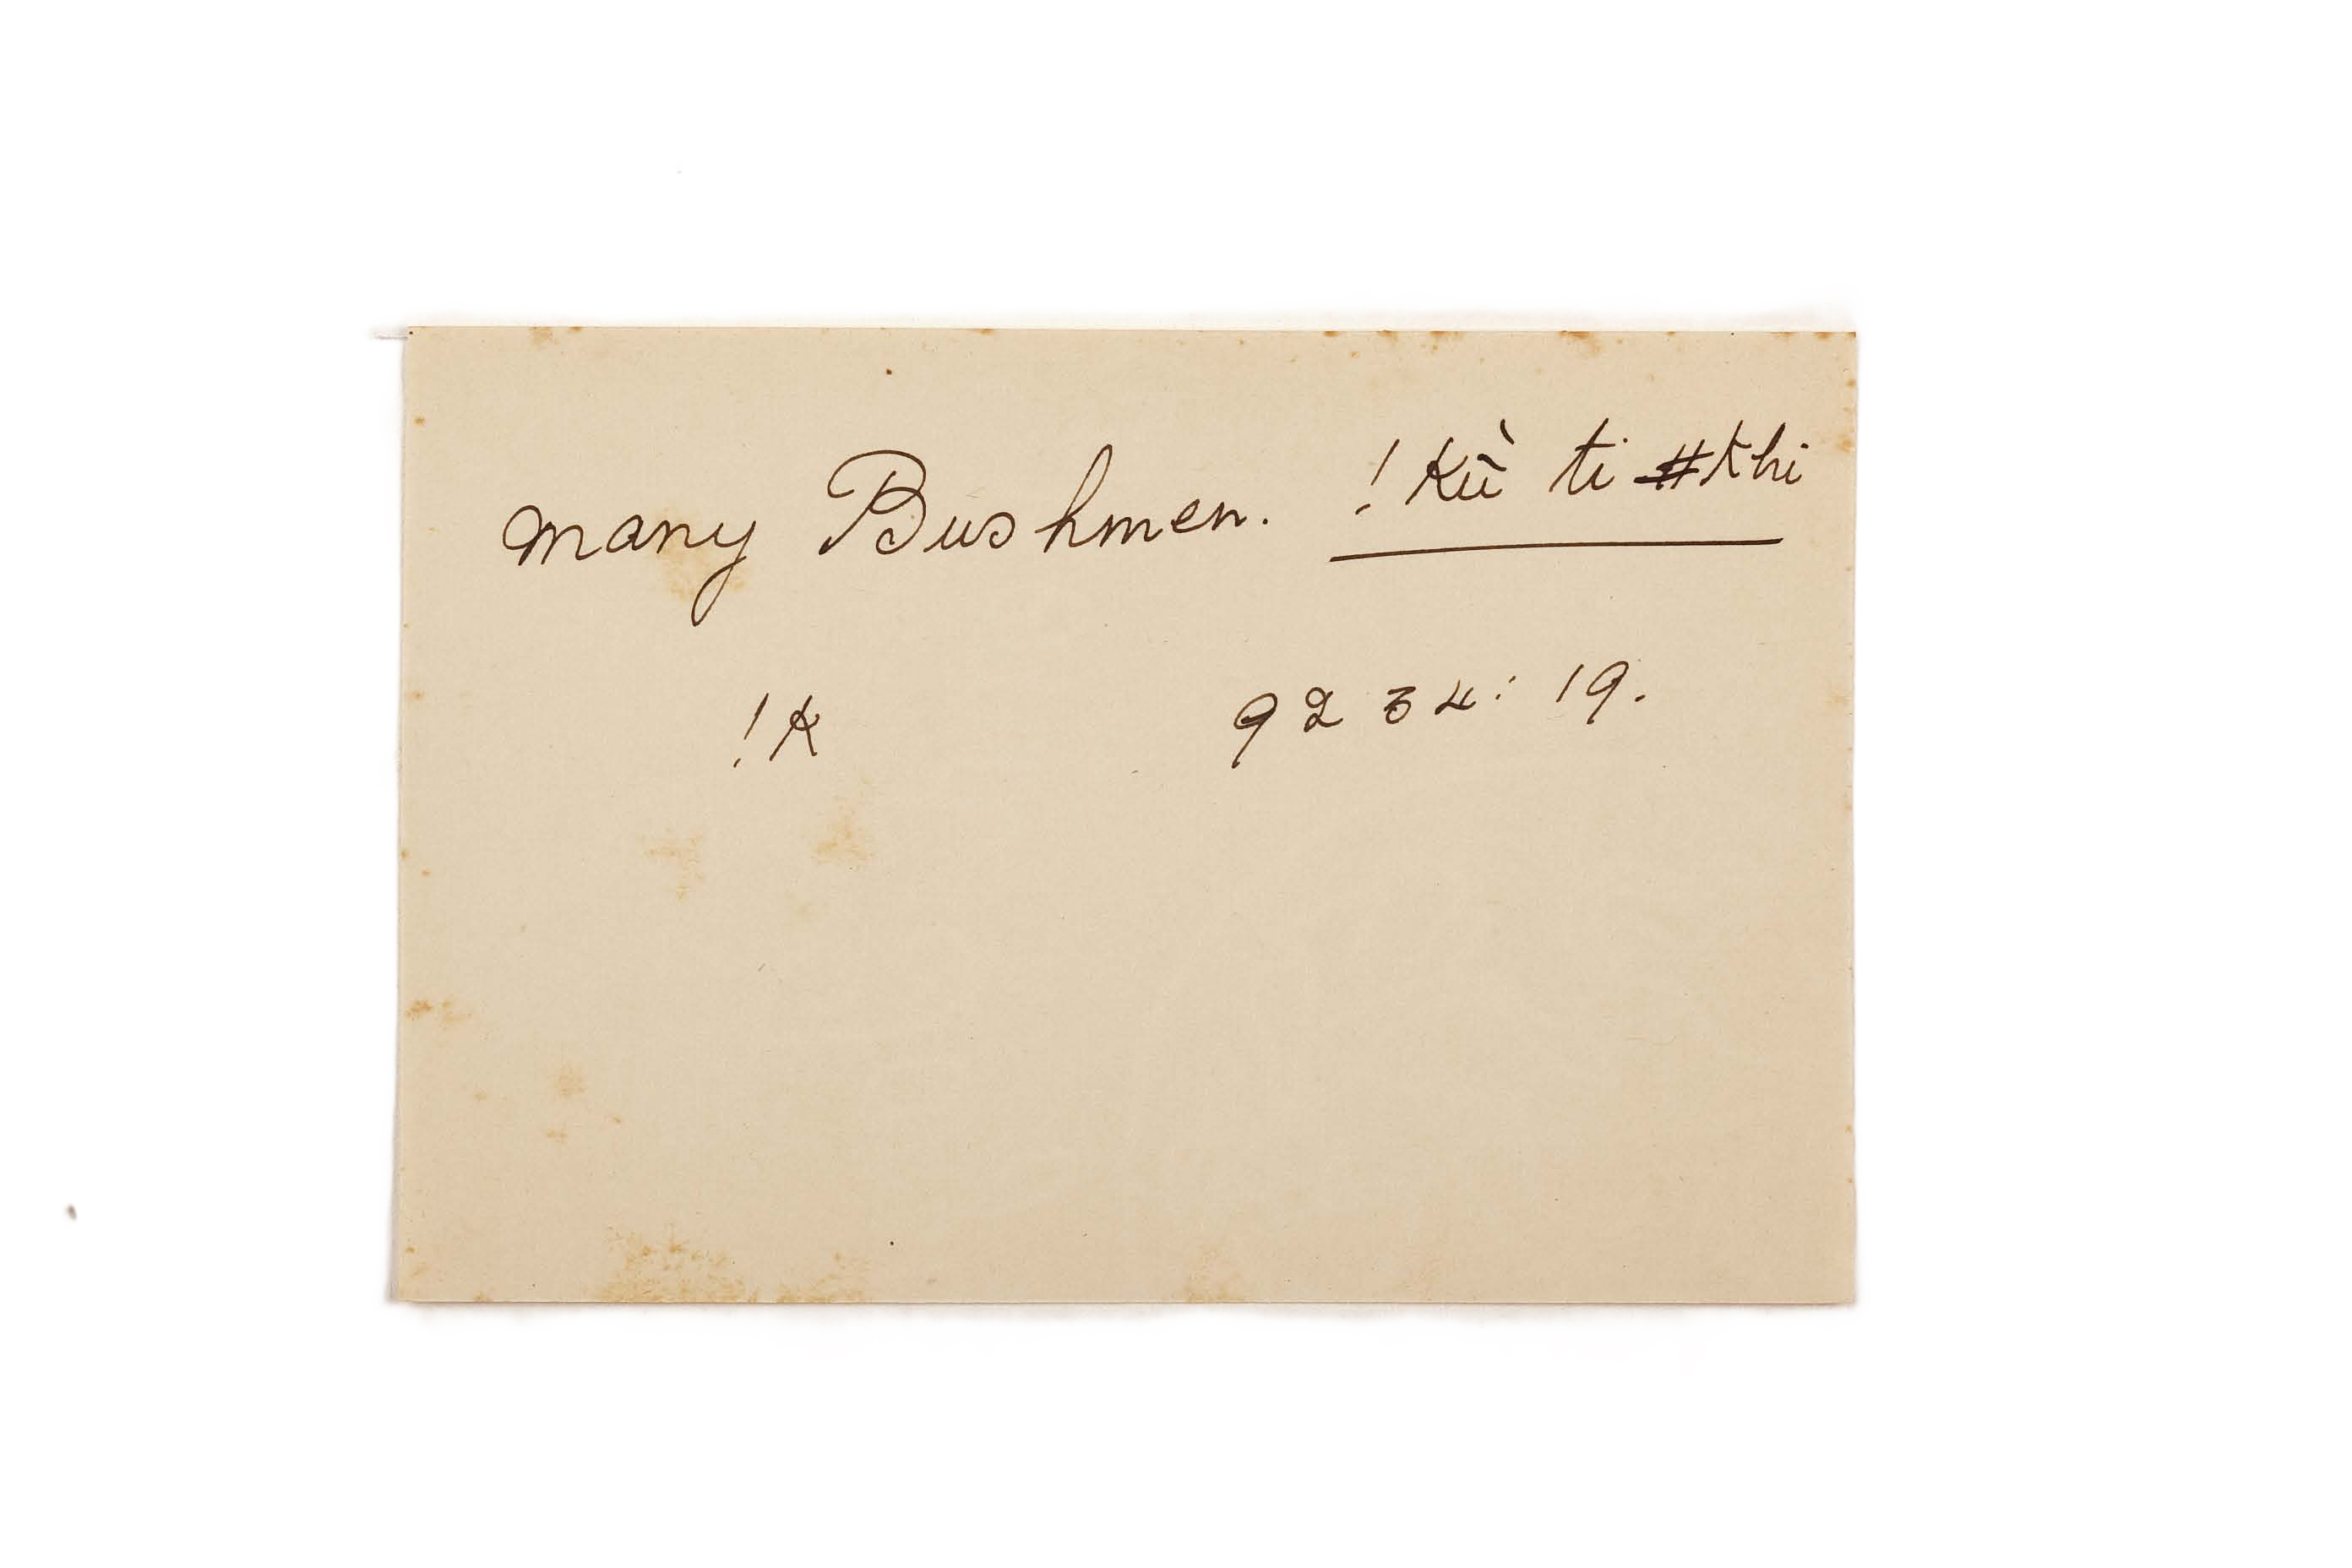 many Bushmen. !Kū̀ ti ǂkhi
!K 9234: 19.